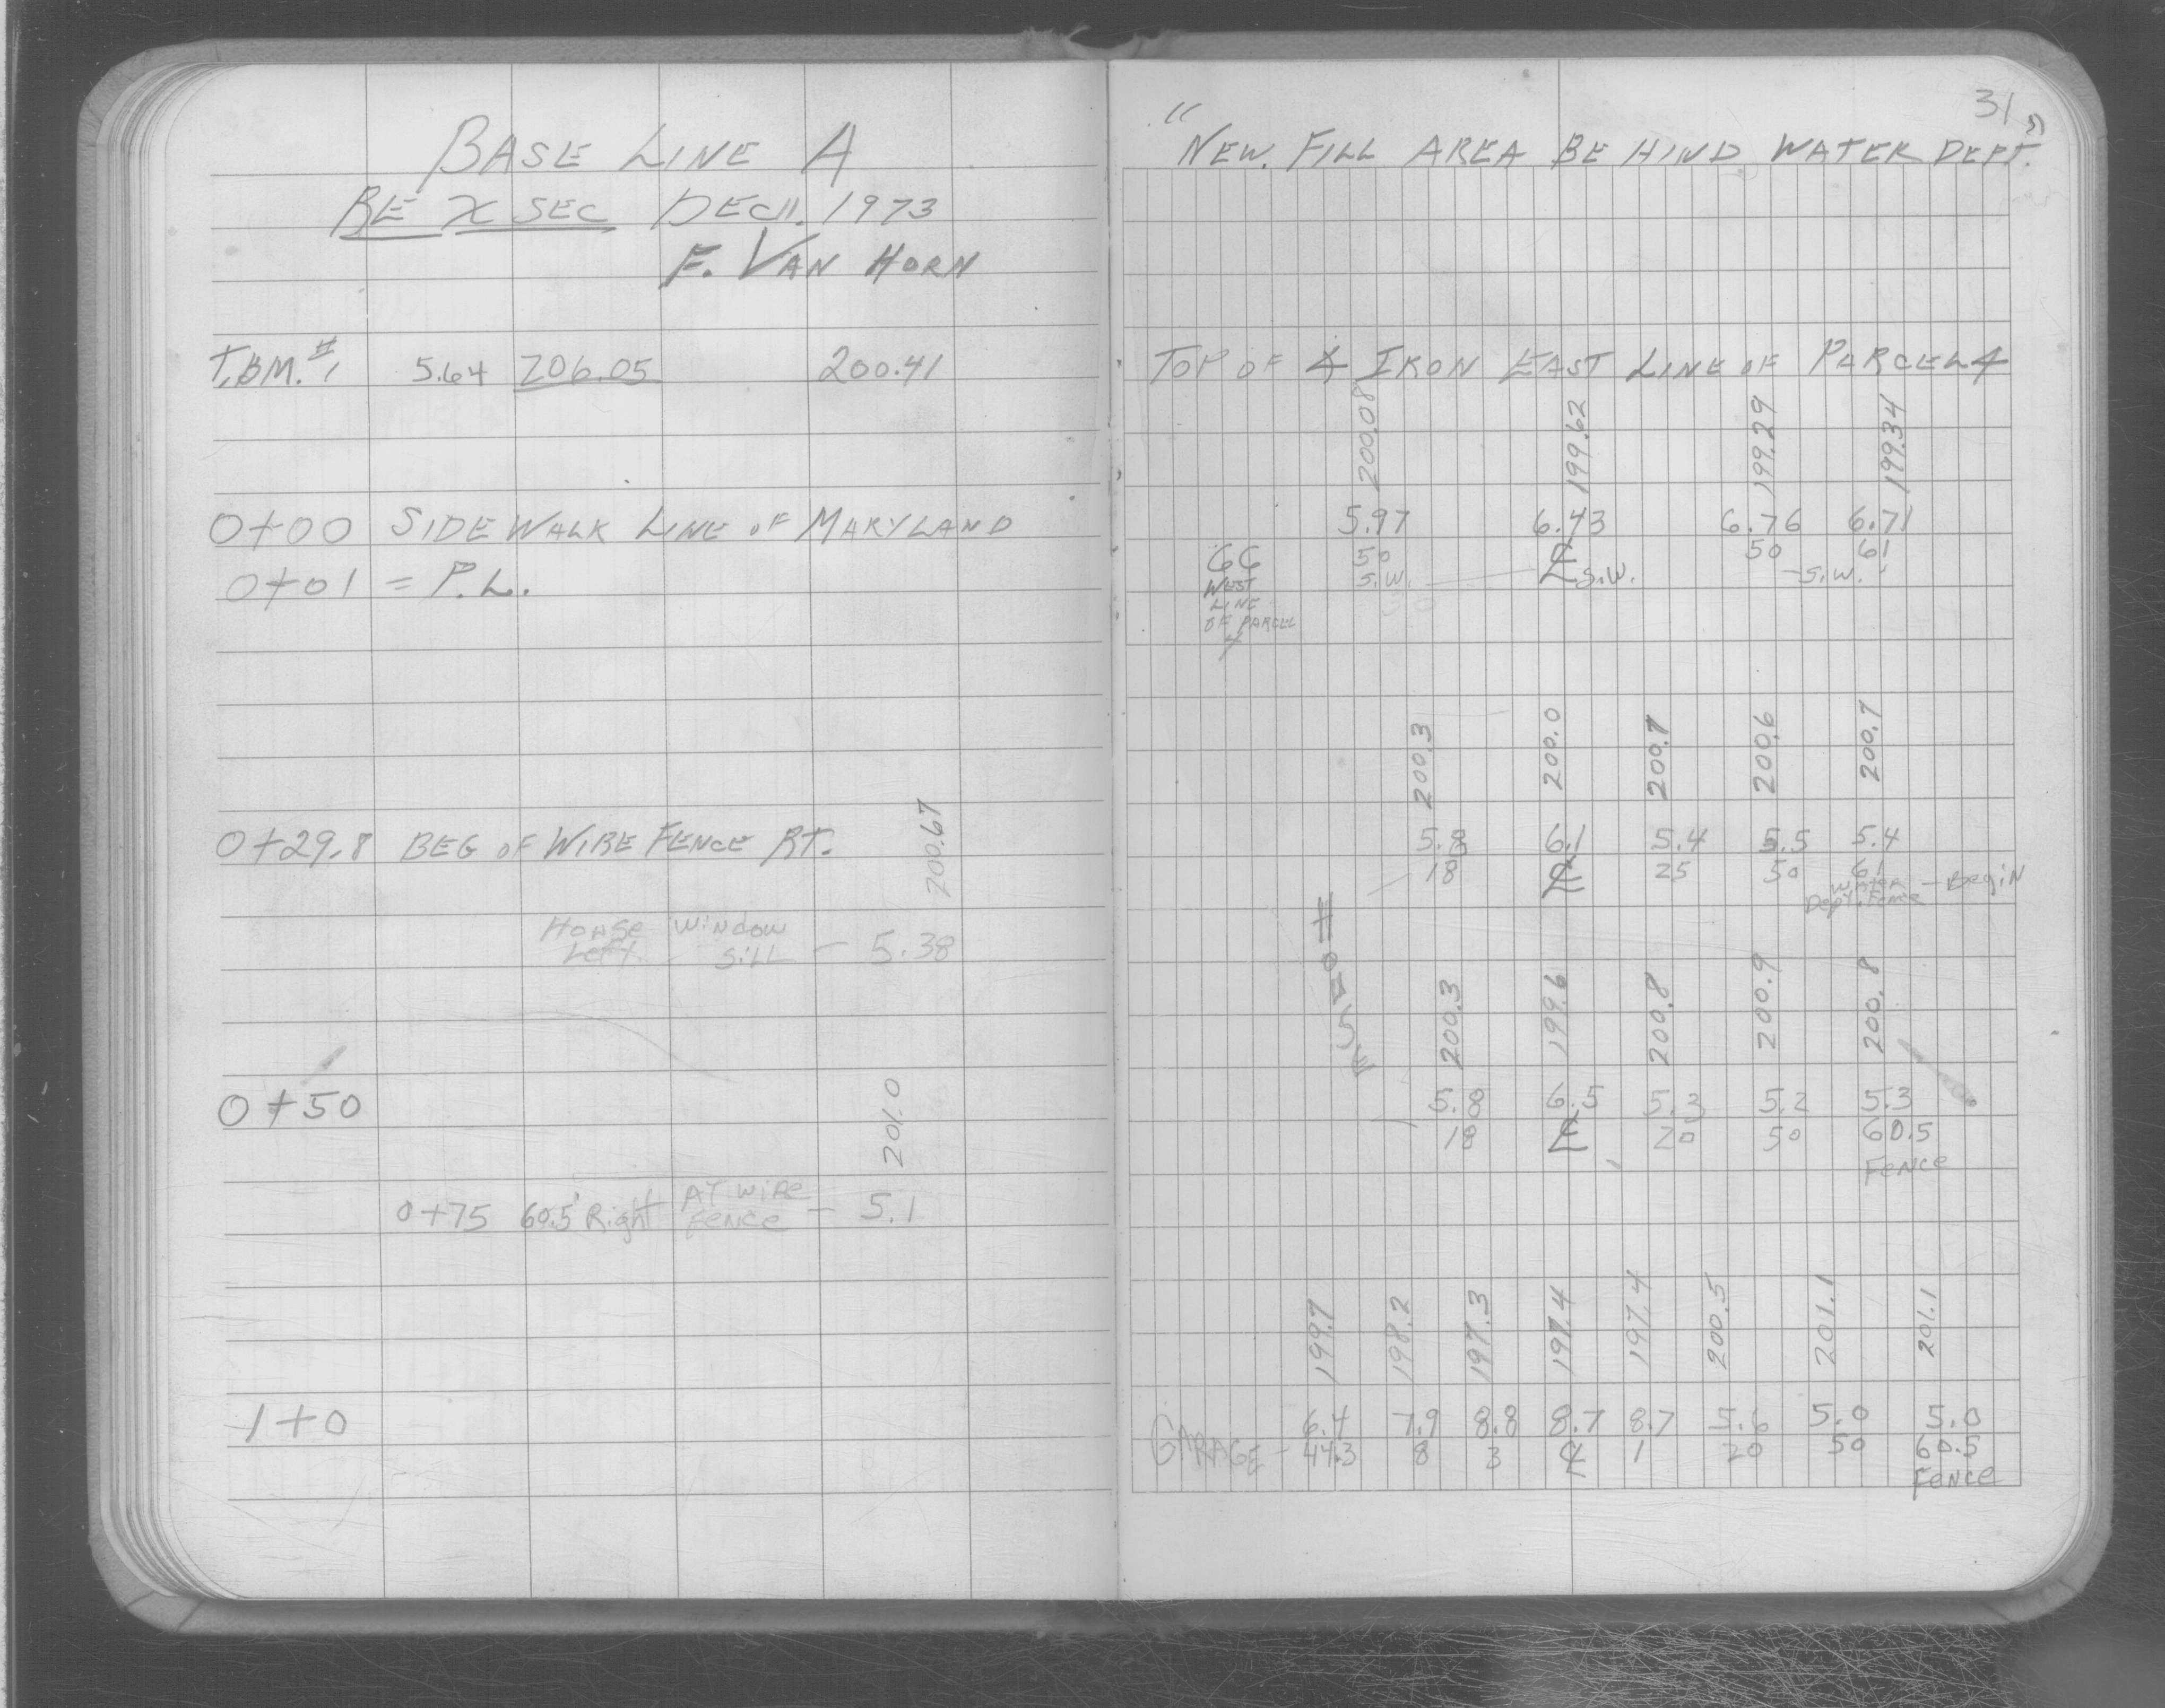 BASE LINE A
RE X SEC DEC 11, 1973
F. VAN HORN
T.B.M. #1 5.64 206.05 200.41
0+00 SIDE WALK LINE OF MARYLAND
0+01 = P.L.
200.67
0+29.8 BEG OF WIRE FENCE RT.
House Window
Left Sill - 5.38
201.0
0+50
0+75 60.5' Right AT WIRE FENCE - 5.1
1+0
31
"NEW. FILL AREA BEHIND WATER DEPT."
TOP OF IRON EAST LINE OF PARCEL 4
200.08 199.62 199.29 199.34
5.97 6.43 6.76 6.71
66 50 50 61
WEST S.W. S.W. - S.W.
LINE
OF PARCEL
4
200.3 200.0 200.7 200.6 200.7
5.8 6.1 5.4 5.5 5.4
18 ℄ 25 50 61
Water Dept. Fence - Begin
HOUSE
200.3 199.6 200.8 200.9 200.8
5.8 6.5 5.3 5.2 5.3
18 ℄ 20 50 60.5
Fence
199.7 198.2 197.3 197.4 197.4 200.5 201.1 201.1
6.4 7.9 8.8 8.7 8.7 5.6 5.0 5.0
GARAGE - 44.3 8 3 ℄ 1 20 50 60.5
Fence